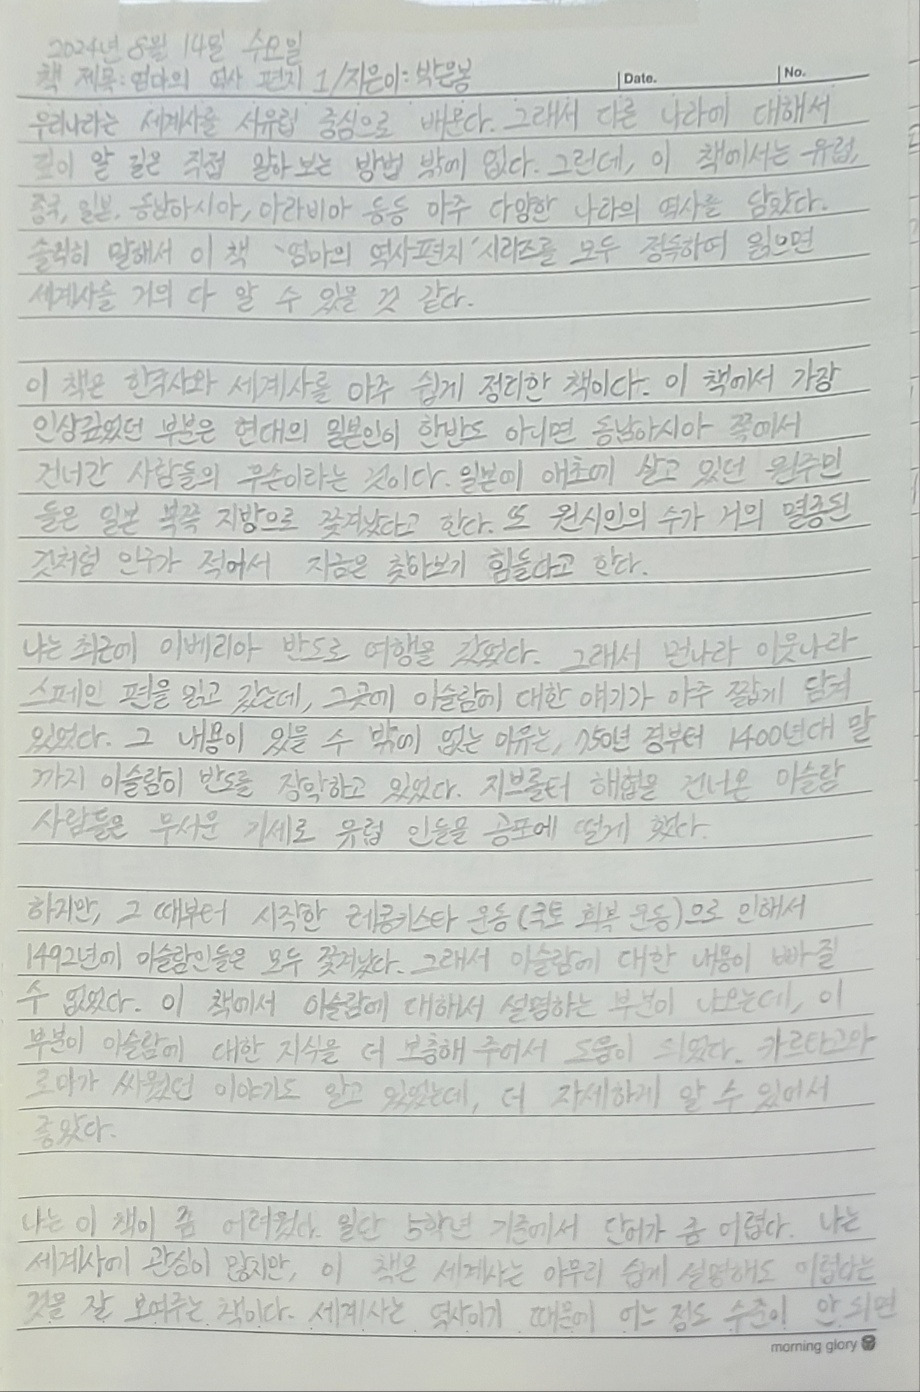 2024년 8월 14일 수요일
책 제목: 엄마의 역사 편지 1/지은이: 박은봉
Date.
No.
우리나라는 세계사를 서유럽 중심으로 배운다. 그래서 다른 나라에 대해서
깊이 알 길은 직접 알아보는 방법 밖에 없다. 그런데, 이 책에서는 유럽,
중국, 일본, 동남아시아, 아라비아 등등 아주 다양한 나라의 역사를 담았다.
솔직히 말해서 이 책 '엄마의 역사편지' 시리즈를 모두 정독하여 읽으면
세계사를 거의 다 알 수 있을 것 같다.
이 책은 한국사와 세계사를 아주 쉽게 정리한 책이다. 이 책에서 가장
인상깊었던 부분은 현대의 일본인이 한반도 아니면 동남아시아 쪽에서
건너간 사람들의 후손이라는 것이다. 일본에 애초에 살고 있던 원주민
들은 일본 북쪽 지방으로 쫓겨났다고 한다. 또 원시인의 수가 거의 멸종된
것처럼 인구가 적어서 지금은 찾아보기 힘들다고 한다.
나는 최근에 이베리아 반도로 여행을 갔었다. 그래서 먼나라 이웃나라
스페인 편을 읽고 갔는데, 그곳에 이슬람에 대한 얘기가 아주 짧게 담겨
있었다. 그 내용이 있을 수 밖에 없는 이유는, 750년 경부터 1400년대 말
까지 이슬람이 반도를 장악하고 있었다. 지브롤터 해협을 건너온 이슬람
사람들은 무서운 기세로 유럽 인들을 공포에 떨게 했다.
하지만, 그 때부터 시작한 레콩키스타 운동(국토 회복 운동)으로 인해서
1492년에 이슬람인들은 모두 쫓겨났다. 그래서 이슬람에 대한 내용이 빠질
수 없었다. 이 책에서 이슬람에 대해서 설명하는 부분이 나오는데, 이
부분이 이슬람에 대한 지식을 더 보충해 주어서 도움이 되었다. 카르타고와
로마가 싸웠던 이야기도 알고 있었는데, 더 자세하게 알 수 있어서
좋았다.
나는 이 책이 좀 어려웠다. 일단 5학년 기준에서 단어가 좀 어렵다. 나는
세계사에 관심이 많지만, 이 책은 세계사는 아무리 쉽게 설명해도 어렵다는
것을 잘 보여주는 책이다. 세계사는 역사이기 때문에 어느 정도 수준이 안 되면
morning glory